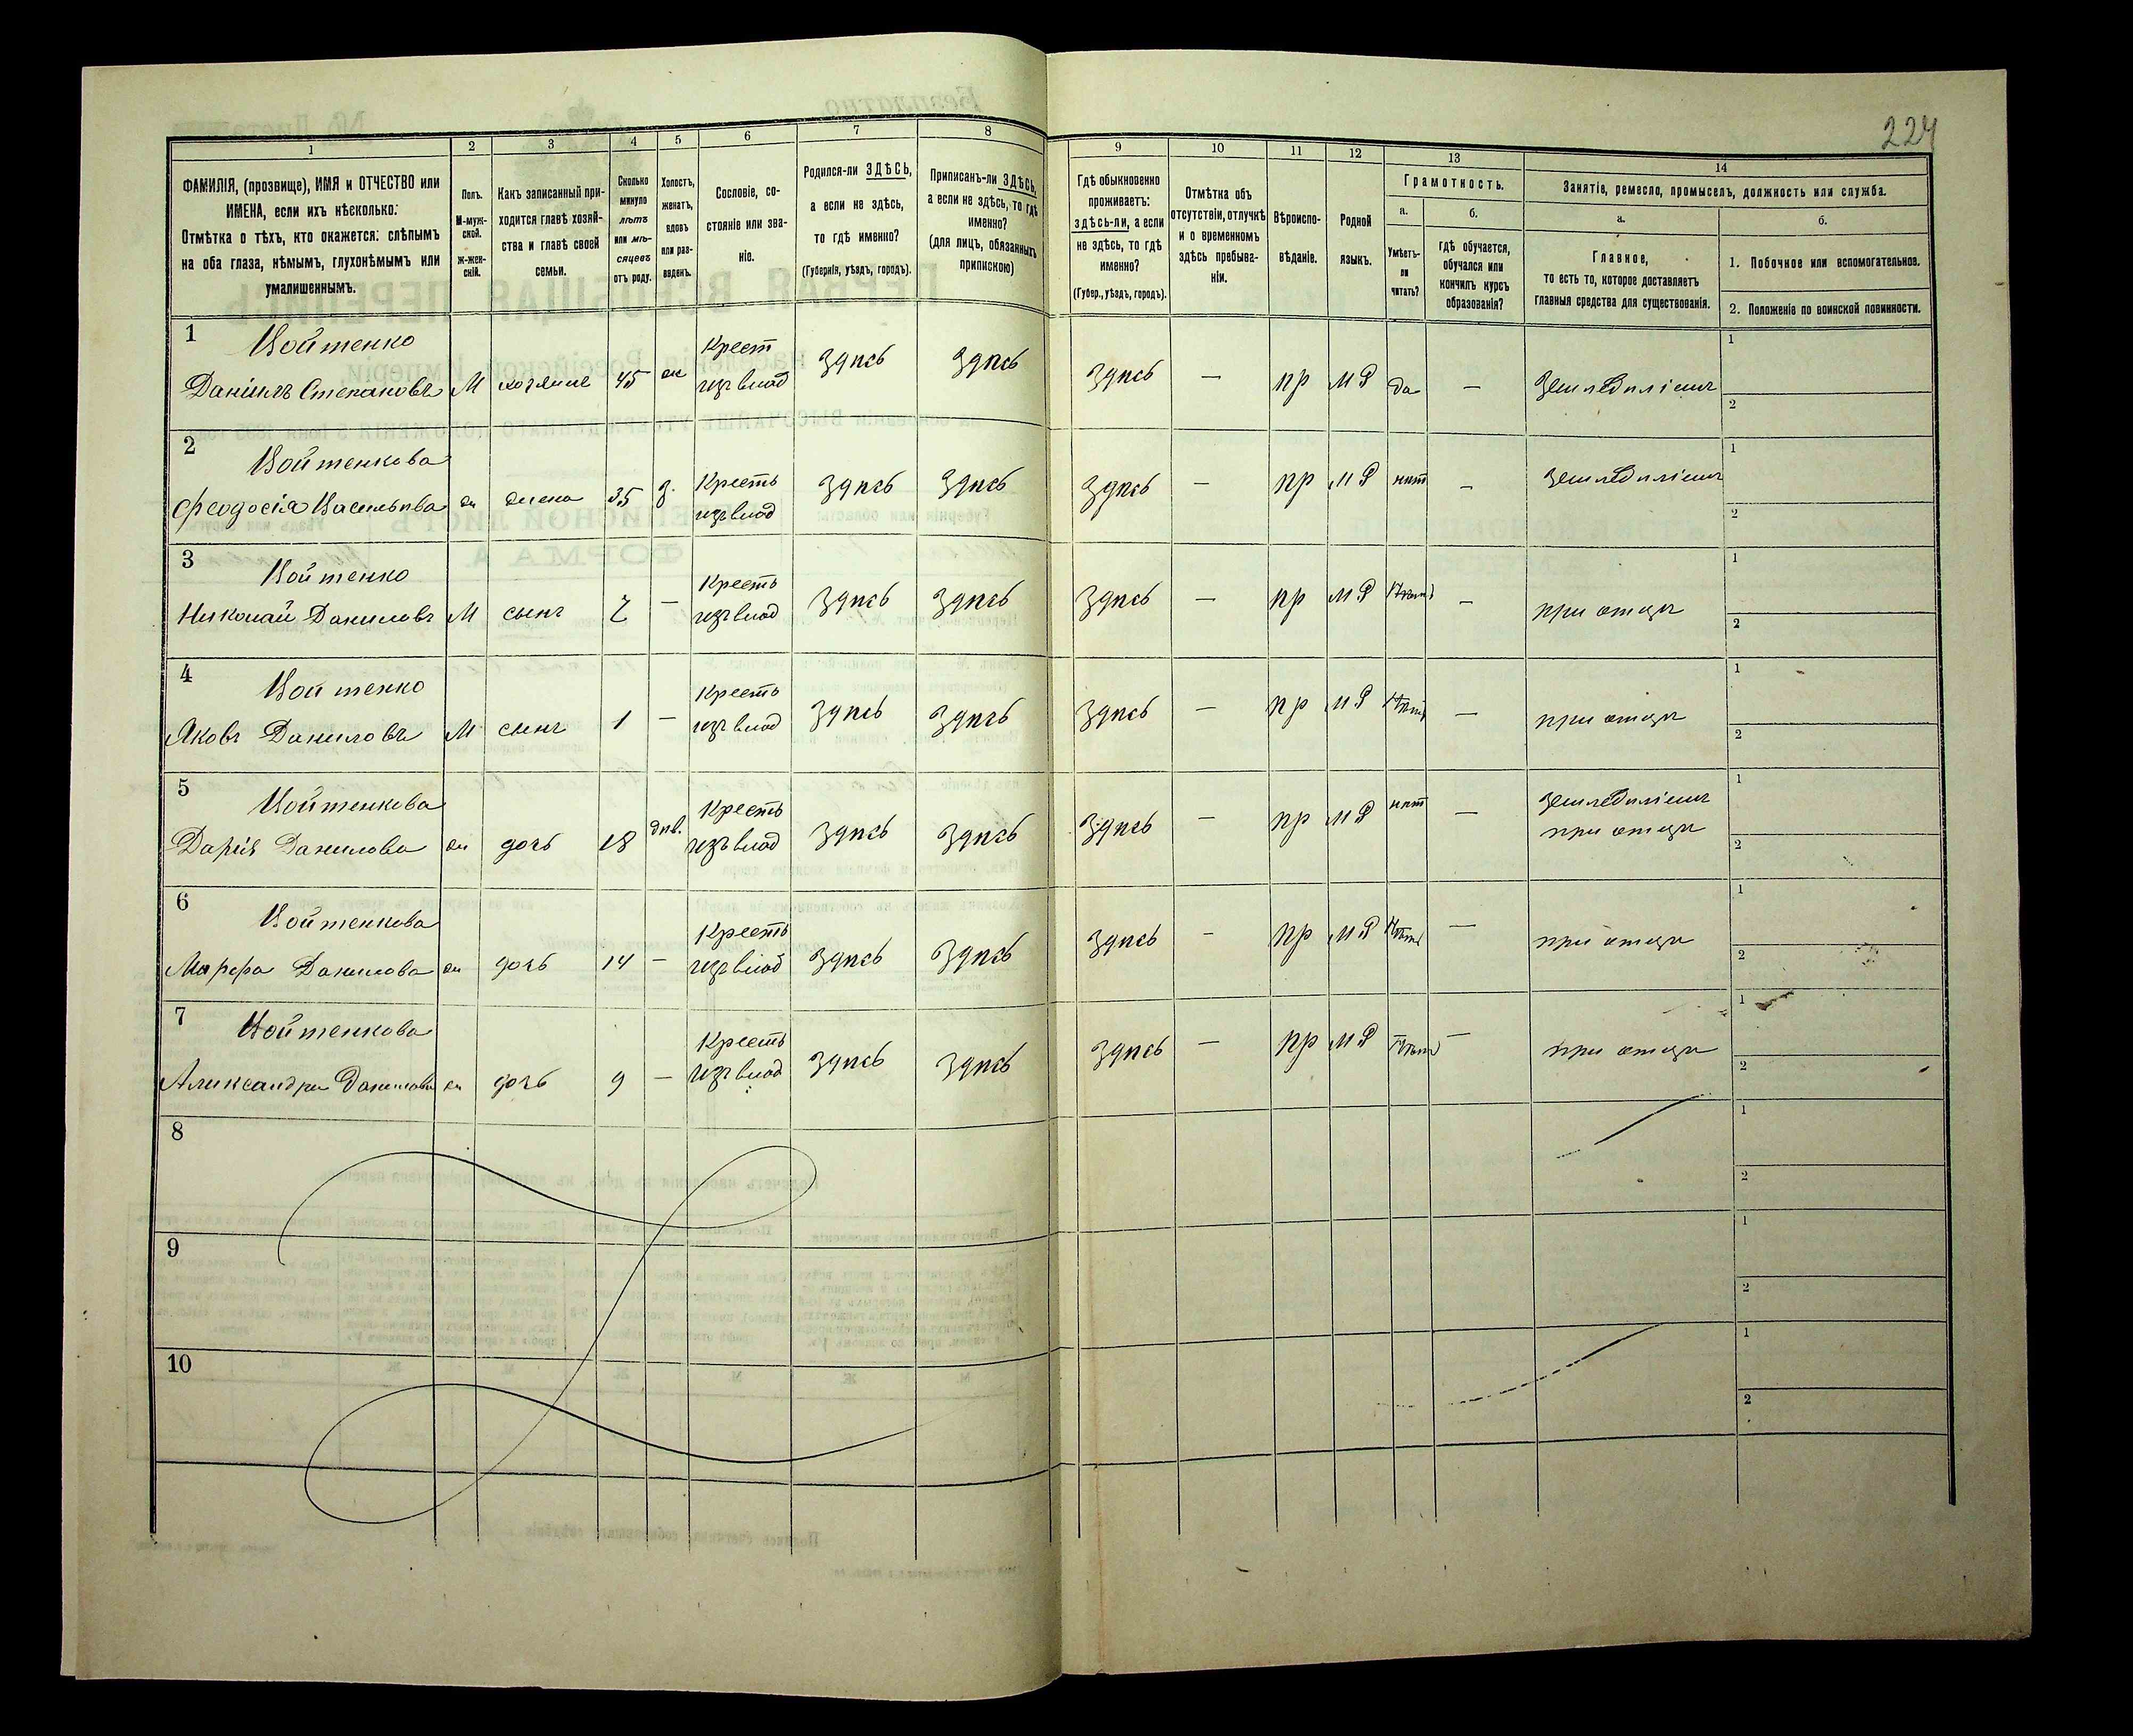 224
1
2
3
4
5
6
7
8
9
10
11
12
13
14
ФАМИЛІЯ, (прозвище), ИМЯ и ОТЧЕСТВО или
ИМЕНА, если ихъ нѣсколько:
Отмѣтка о тѣхъ, кто окажется: слѣпымъ
на оба глаза, нѣмымъ, глухонѣмымъ или
умалишеннымъ.
Полъ.
М-муж-
ской.
ж-жен-
скій.
Какъ записанный при-
ходится главѣ хозяй-
ства и главѣ своей
семьи.
Сколько
минуло
лѣтъ
или мѣ-
сяцевъ
отъ роду.
Холостъ,
женатъ,
вдовъ
или раз-
веденъ.
Сословіе, со-
стояніе или зва-
ніе.
Родился-ли ЗДѢСЬ,
а если не здѣсь,
то гдѣ именно?
(Губернія, уѣздъ, городъ).
Приписанъ-ли ЗДѢСЬ,
а если не здѣсь, то гдѣ
именно?
(для лицъ, обязанныхъ
припискою)
Гдѣ обыкновенно
проживаетъ:
здѣсь-ли, а если
не здѣсь, то гдѣ
именно?
(Губер., уѣздъ, городъ).
Отмѣтка объ
отсутствіи, отлучкѣ
и о временномъ
здѣсь пребыва-
ніи.
Вѣроиспо-
вѣданіе.
Родной
языкъ.
Грамотность.
а.
Умѣетъ-
ли
читать?
б.
гдѣ обучается,
обучался или
кончилъ курсъ
образованія?
Занятіе, ремесло, промыселъ, должность или служба.
а.
Главное,
то есть то, которое доставляетъ
главныя средства для существованія.
б.
1. Побочное или вспомогательное.
2. Положеніе по воинской повинности.
1
Войтенко
Даніилъ Степановъ М хозяинъ 45 ж Крест изъ влад здѣсь здѣсь здѣсь — пр МР да — Земледѣліемъ
1
2
2
Войтенкова
Феодосія Васильева ж жена 35 з. Кресть изъ влад здѣсь здѣсь здѣсь — пр МР нѣт — Земледѣліемъ
1
2
3
Войтенко
Николай Даниловъ М сынъ 7 — Кресть изъ влад здѣсь здѣсь здѣсь — пр МР — при отцѣ
1
2
4
Войтенко
Яковъ Даниловъ М сынъ 1 — Кресть изъ влад здѣсь здѣсь здѣсь — пр МР — при отцѣ
1
2
5
Войтенкова
Дарія Данилова ж дочь 18 дѣв. Кресть изъ влад здѣсь здѣсь здѣсь — пр МР нѣт — Земледѣліемъ при отцѣ
1
2
6
Войтенкова
Марфа Данилова ж дочь 14 — Кресть изъ влад здѣсь здѣсь здѣсь — пр МР — при отцѣ
1
2
7
Войтенкова
Александра Данилова ж дочь 9 — Кресть изъ влад здѣсь здѣсь здѣсь — пр МР — при отцѣ
1
2
8
1
2
9
1
2
10
1
2